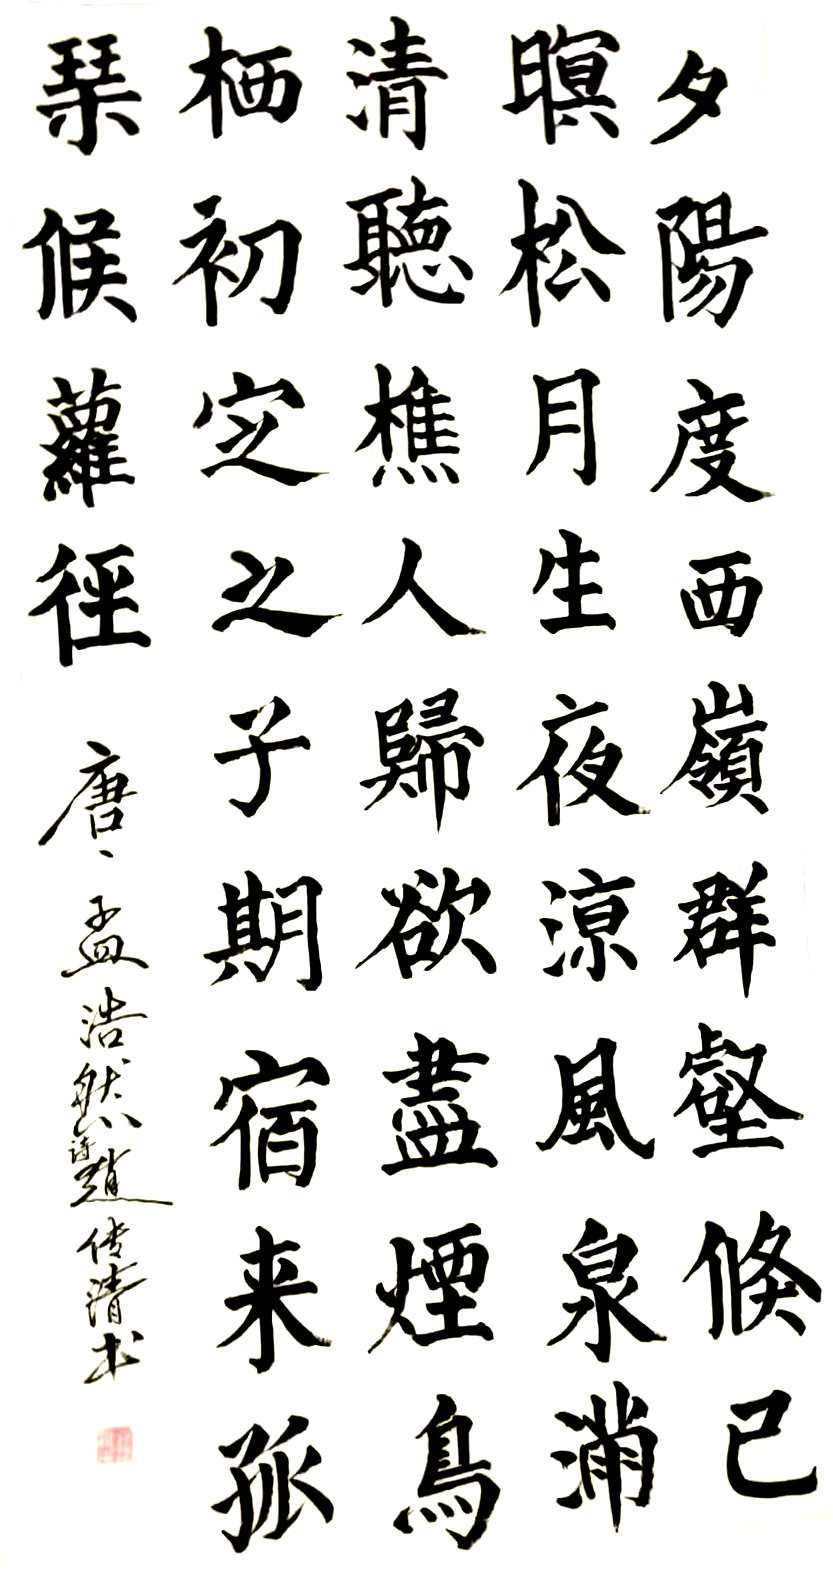 夕陽度西嶺群壑倏已
暝松月生夜涼風泉滿
清聽樵人歸欲盡煙鳥
栖初定之子期宿来孤
琹候蘿徑
唐、孟浩然诗趙传清书